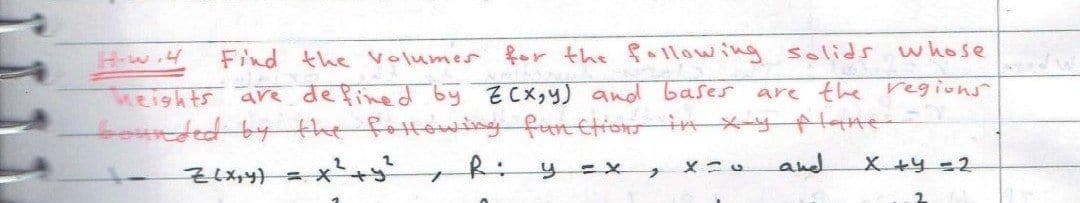 H.w.4 Find the Volumes for the following solids whose
heights are defined by Z(x,y) and bases are the regions
bounded by the following functions in x-y plane-
1- Z(x,y) = x²+y² , R: y = x , x = 0 and x + y = 2